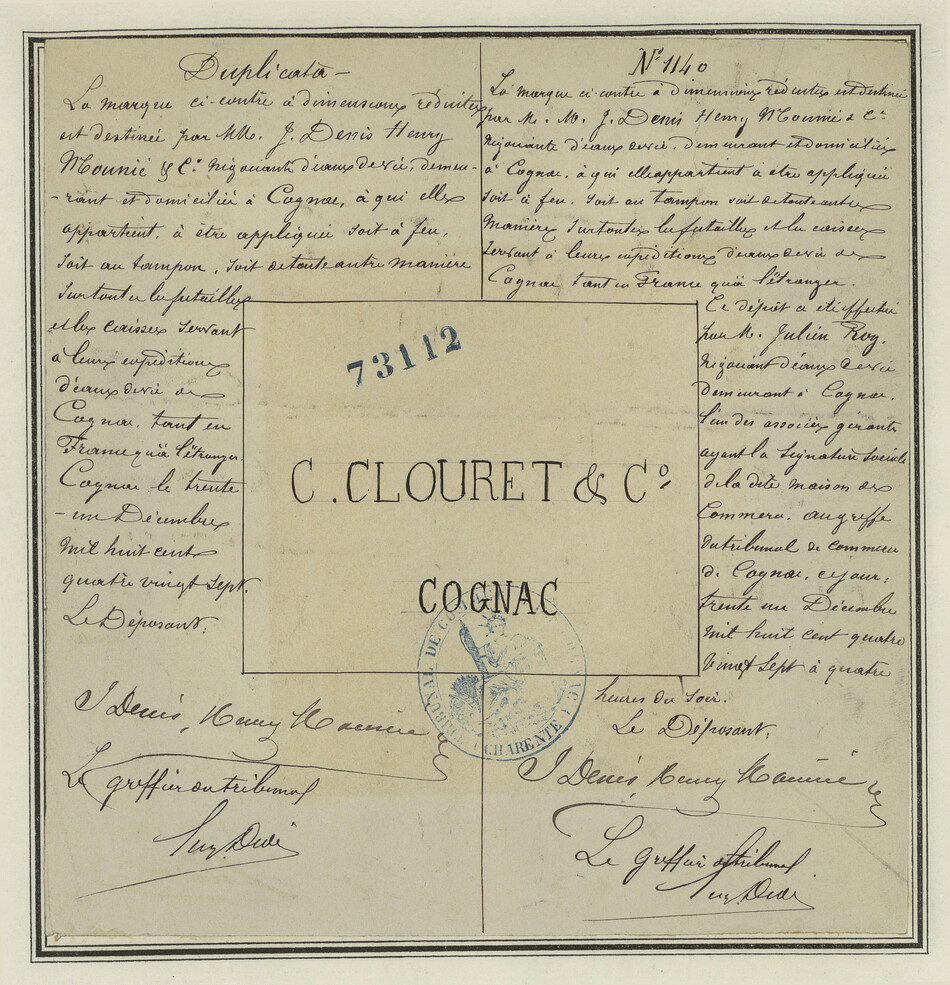 Duplicata
La marque ci-contre à dimensions réduites
est destinée par MM. J. Denis Henry
Mounié & Cie Négociants d'eaux de vie, demeu-
-rant et domiciliés à Cognac, à qui elle
appartient, à être appliquée soit à feu,
soit au tampon, soit de toute autre manière
sur toutes les futailles
et les caisses servant
à leurs expéditions
d'eaux de vie de
Cognac, tant en
France qu'à l'étranger.
Cognac, le trente
-un Décembre
mil huit cent
quatre vingt sept.
Le Déposant:
J Denis, Henry Mounié
Le greffier du tribunal
No 1140
La marque ci-contre à dimensions réduites est destinée
par M. M. J. Denis Henry Mounié & Cie
Négociants d'eaux de vie, demeurant et domiciliés
à Cognac, à qui elle appartient à être appliquée
soit à feu, soit au tampon soit de toute autre
manière sur toutes les futailles et les caisses
servant à leurs expéditions d'eaux de vie de
Cognac tant en France qu'à l'étranger.
Ce dépôt a été effectué
par M. Julien Roy,
Négociant d'eaux de vie
demeurant à Cognac,
l'un des associés gérants
ayant la signature sociale
de la dite maison de
Commerce, au greffe
du tribunal de commerce
de Cognac, ce jour,
trente un Décembre
mil huit cent quatre
vingt sept à quatre
heures du soir.
Le Déposant,
J Denis, Henry Mounié
Le Greffier du tribunal
73112
C. CLOURET & Co
COGNAC
TRIBUNAL DE COMMERCE
(CHARENTE)